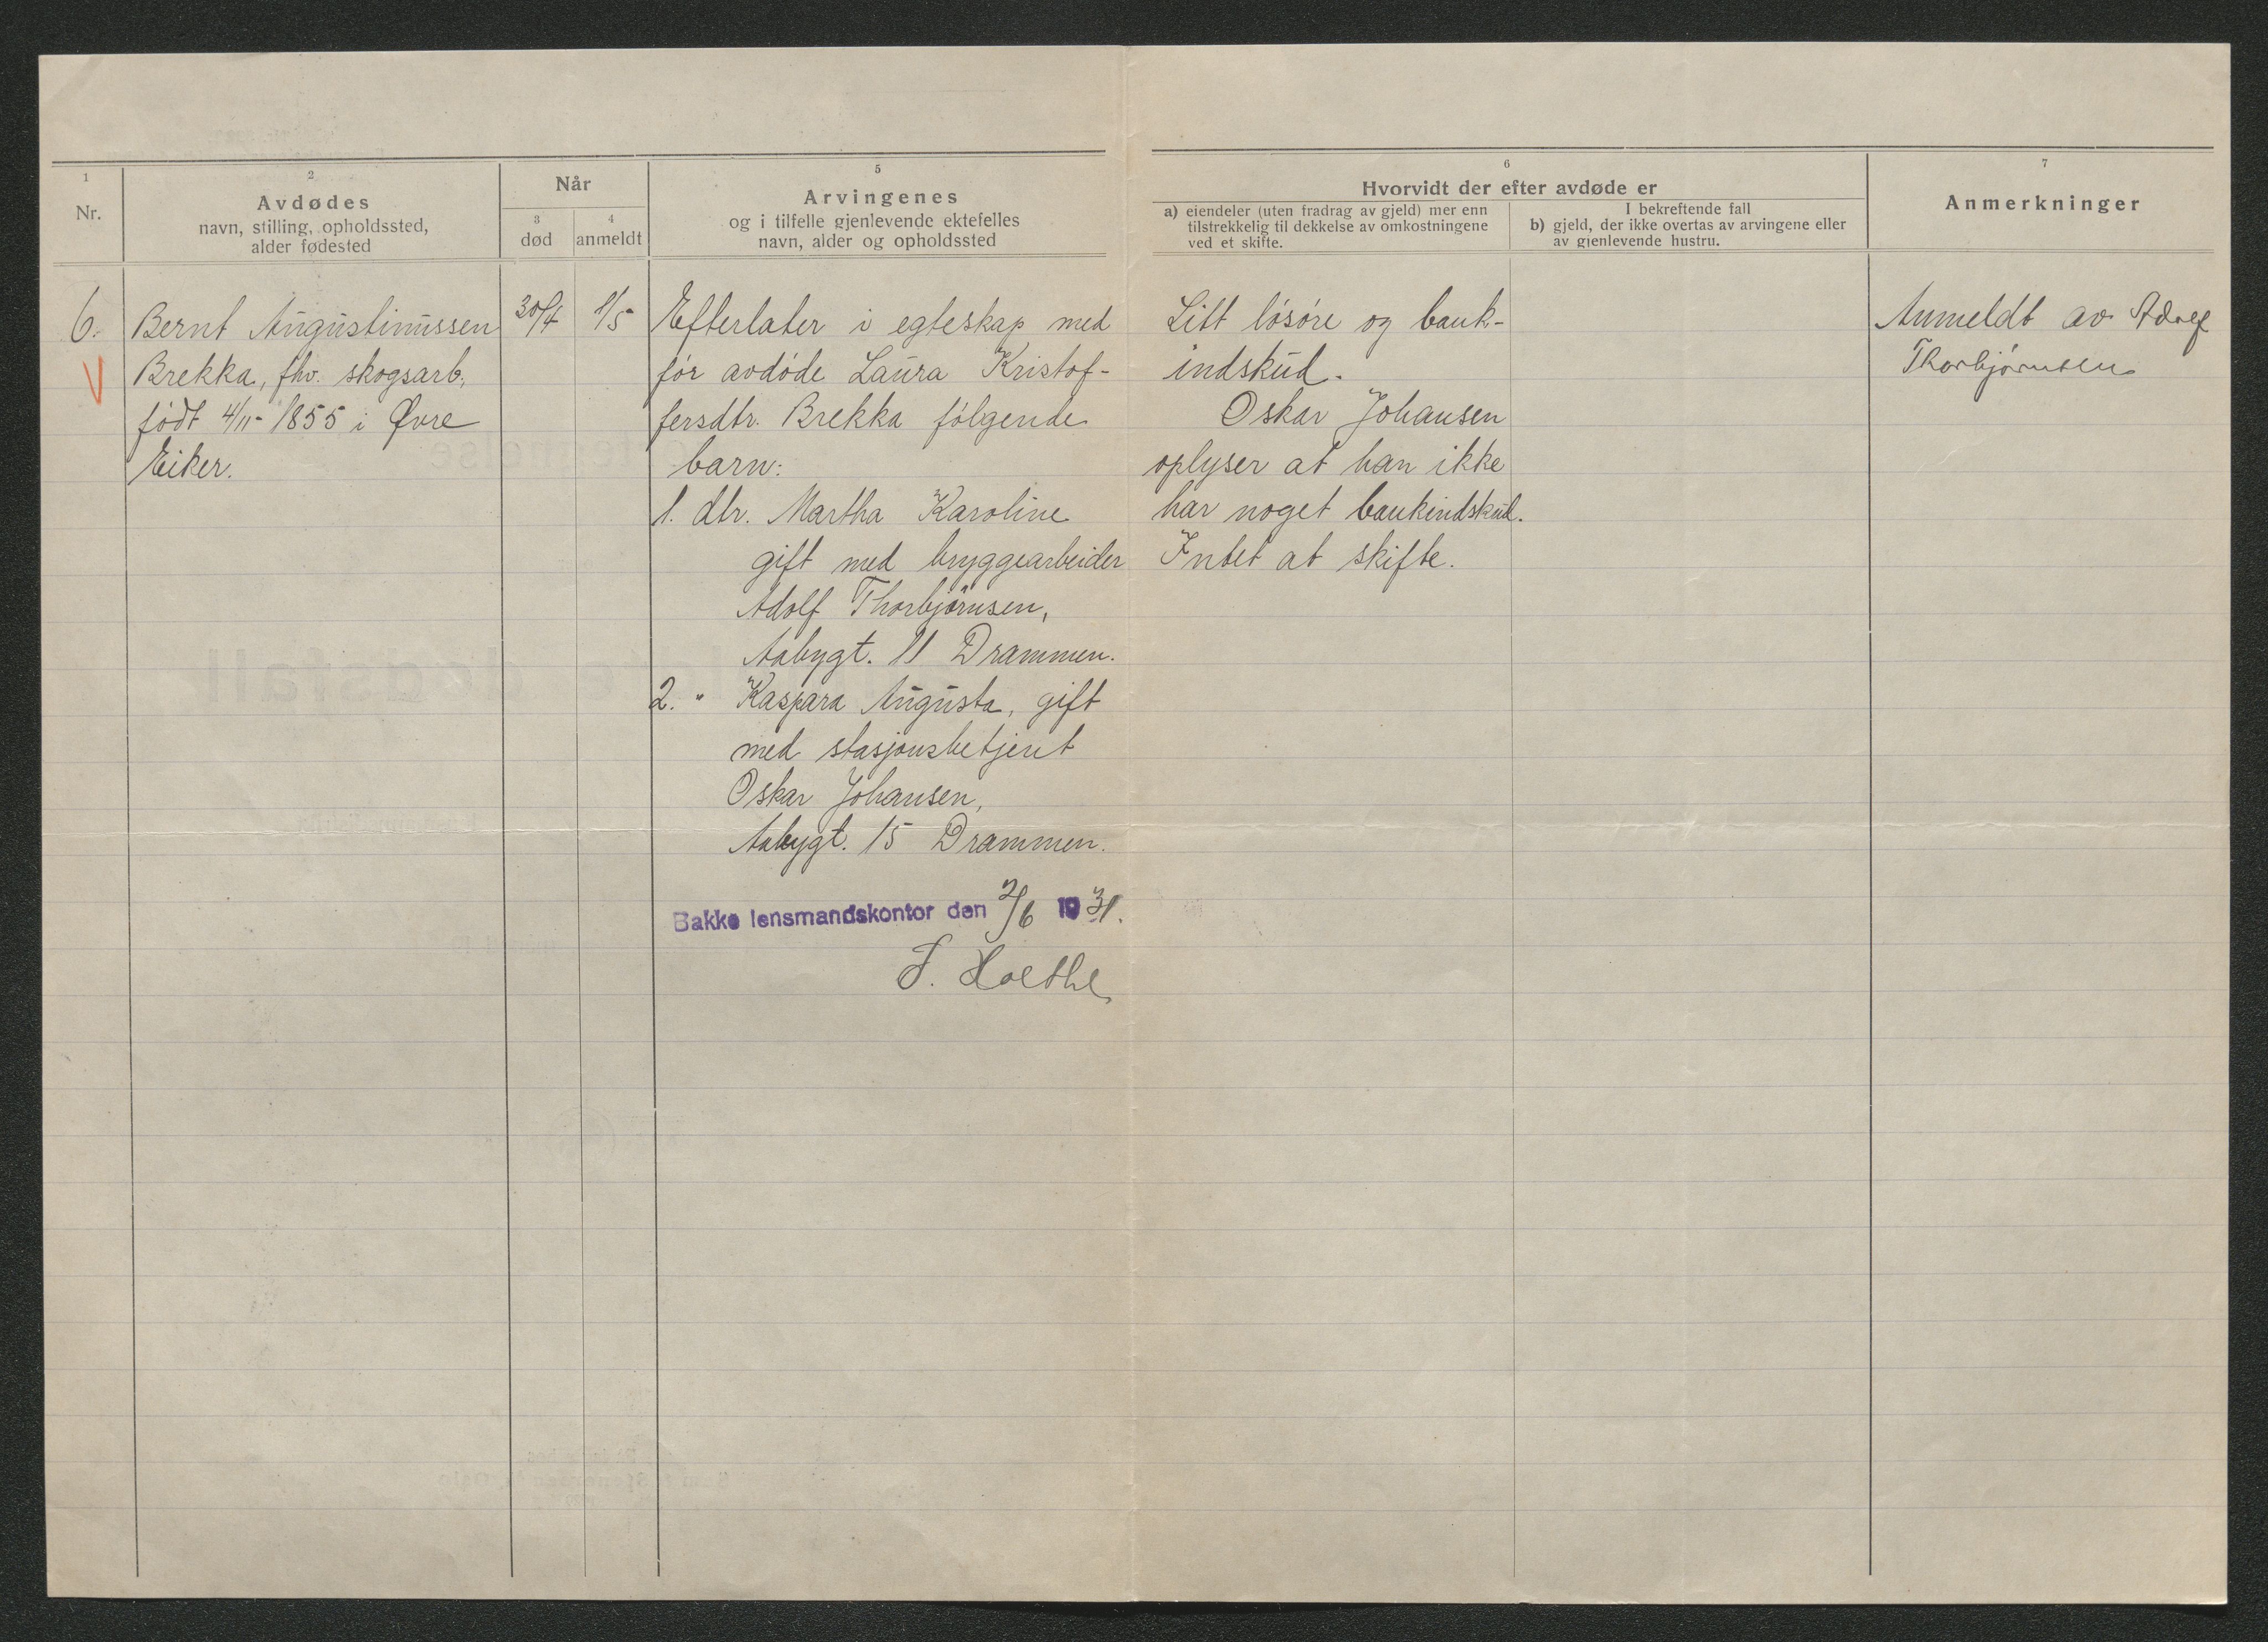 1
Nr.
2
Avdødes
navn, stilling, opholdssted,
alder fødested
Når
3
død
4
anmeldt
5
Arvingenes
og i tilfelle gjenlevende ektefelles
navn, alder og opholdssted
6
Hvorvidt der efter avdøde er
a) eiendeler (uten fradrag av gjeld) mer enn
tilstrekkelig til dekkelse av omkostningene
ved et skifte.
I bekreftende fall
b) gjeld, der ikke overtas av arvingene eller
av gjenlevende hustru.
7
Anmerkninger
6.
Bernt Augustinussen
Brekka, fhv. skogsarb.,
født 4/11-1855 i Øvre
Eiker.
30/4
1/5
Efterlater i egteskap med
før avdøde Laura Kristof-
fersdtr. Brekka følgende
barn:
1. dtr. Martha Karoline
gift med bryggearbeider
Adolf Thorbjørnsen,
Aabygt. 11 Drammen.
2. " Kaspara Augusta, gift
med stasjonsbetjent
Oskar Johansen,
Aabygt. 15 Drammen.
Bakke lensmandskontor den 2/6 1931.
Litt løsøre og bank-
indskud.
Oskar Johansen
oplyser at han ikke
har noget bankindskud.
Intet at skifte.
Anmeldt av Adolf
Thorbjørnsen